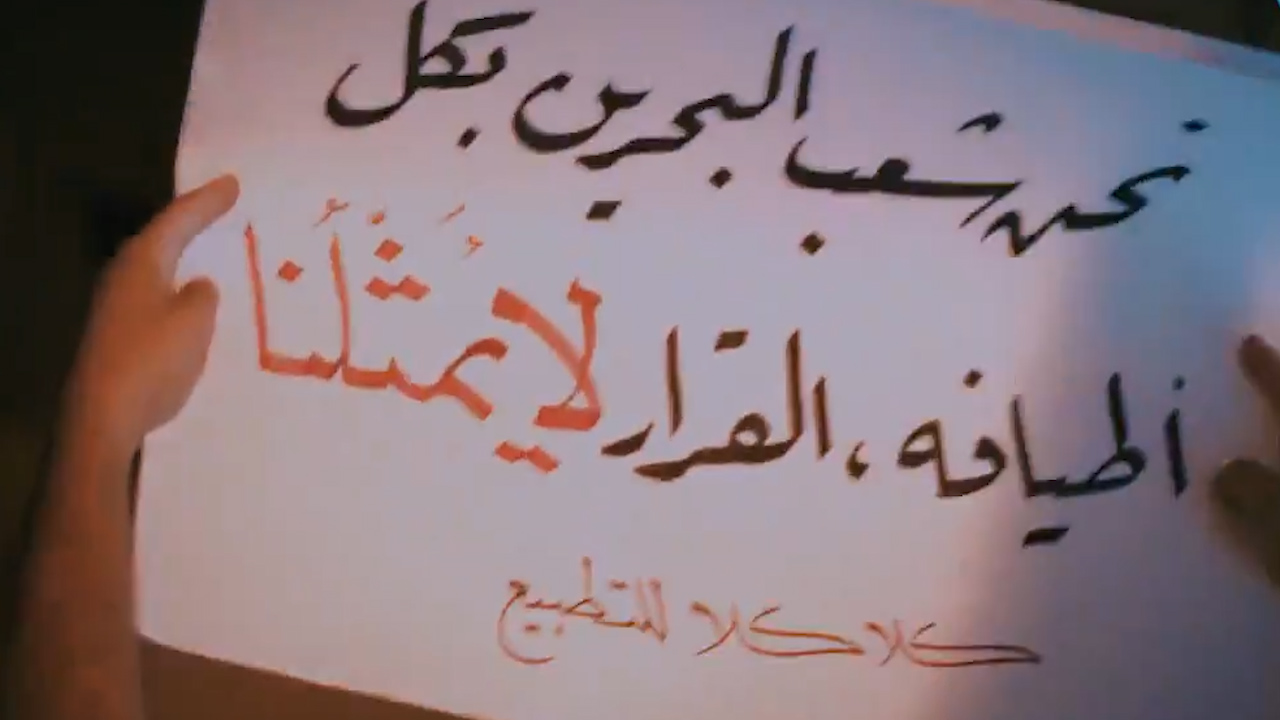 نحن شعب البحرين بكل
أطيافه، القرار لا يُمَثِّلُنا
كلا كلا للتطبيع